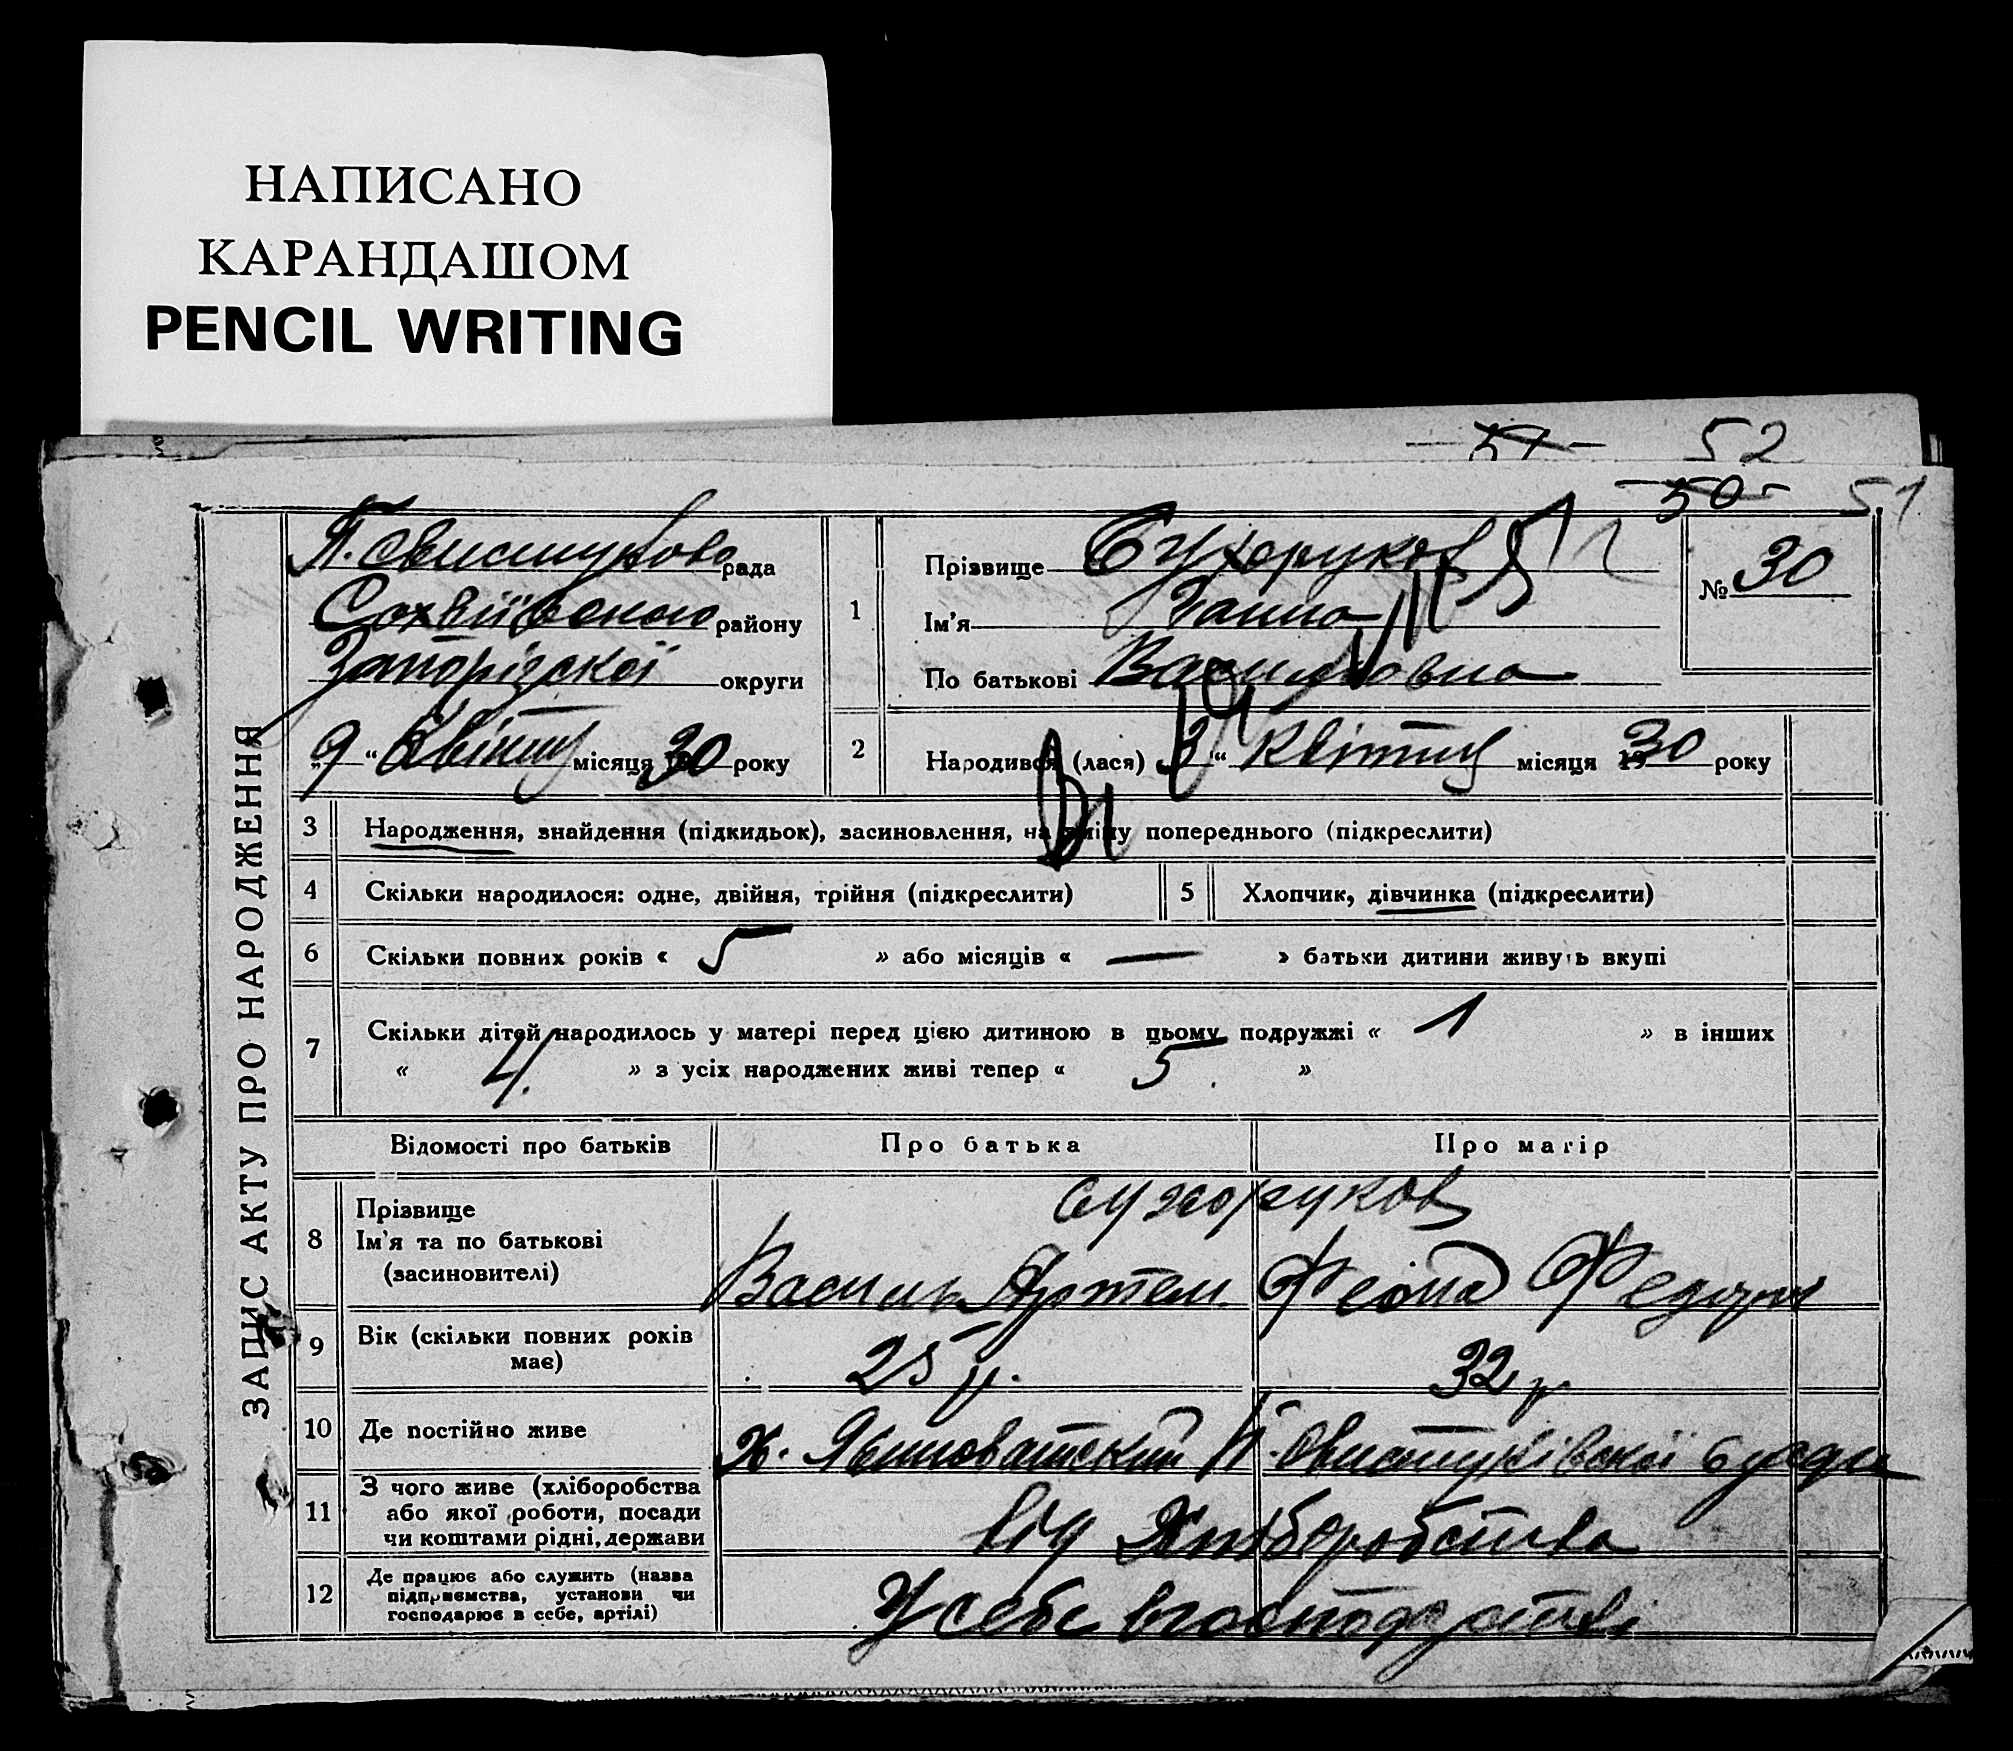 НАПИСАНО
КАРАНДАШОМ
PENCIL WRITING
52
50 51
ЗАПИС АКТУ ПРО НАРОДЖЕННЯ
рада
району
Запорізскої округи
„9“ Квітня місяця 30 року
1
Прізвище Сухоруков
Ім'я
По батькові Васильовна
№ 30
2
Народився (лася) 3 “ Квітня місяця 1930 року
3 Народження, знайдення (підкидьок), засиновлення, на зміну попереднього (підкреслити)
4 Скільки народилося: одне, двійня, трійня (підкреслити) 5 Хлопчик, дівчинка (підкреслити)
6 Скільки повних років « 5 » або місяців « — » батьки дитини живуть вкупі
7 Скільки дітей народилось у матері перед цією дитиною в цьому подружжі « 1 » в інших
« 4. » з усіх народжених живі тепер « 5. »
Відомості про батьків Про батька Про матір
8 Прізвище
Ім'я та по батькові
(засиновителі)
Сухоруков
Василь Артем. Федор
9 Вік (скільки повних років
має)
25 р. 32 р.
10 Де постійно живе
х. П.
11 З чого живе (хліборобства
або якої роботи, посади
чи коштами рідні, держави
від Хліборобства
12 Де працює або служить (назва
підприємства, установи чи
господарює в себе, артілі)
У себе в господарстві